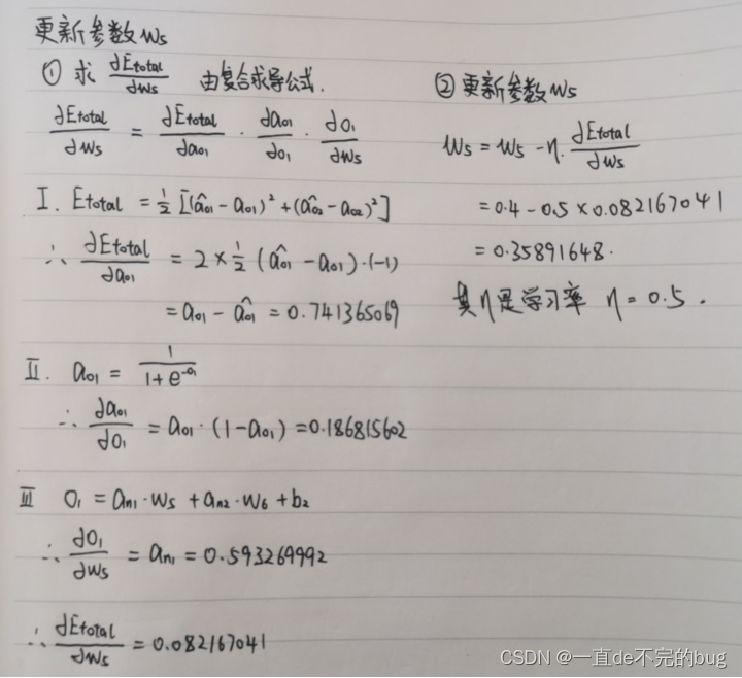 更新参数W5
① 求 ∂Etotal/∂W5 由复合求导公式.
∂Etotal/∂W5 = ∂Etotal/∂ao1 · ∂ao1/∂o1 · ∂o1/∂W5
I. Etotal = 1/2 [(âo1 - ao1)² + (âo2 - ao2)²]
∴ ∂Etotal/∂ao1 = 2 × 1/2 (âo1 - ao1)·(-1)
= ao1 - âo1 = 0.741365069
II. ao1 = 1/(1+e^-o1)
∴ ∂ao1/∂o1 = ao1·(1-ao1) = 0.186815602
III O1 = an1·W5 + an2·W6 + b2
∴ ∂O1/∂W5 = an1 = 0.593269992
∴ ∂Etotal/∂W5 = 0.082167041
② 更新参数W5
W5 = W5 - η·∂Etotal/∂W5
= 0.4 - 0.5 × 0.082167041
= 0.35891648.
其η是学习率 η = 0.5.
CSDN @一直de不完的bug